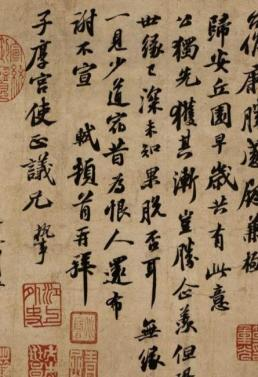 候康勝感慰兼極
歸安丘園早歲共有此意
公獨先獲其漸豈勝企羨但恐
世緣已深未知果脫否耳 無緣
一見少道宿昔為恨人還布
謝不宣 軾頓首再拜
子厚宮使正議兄 執事